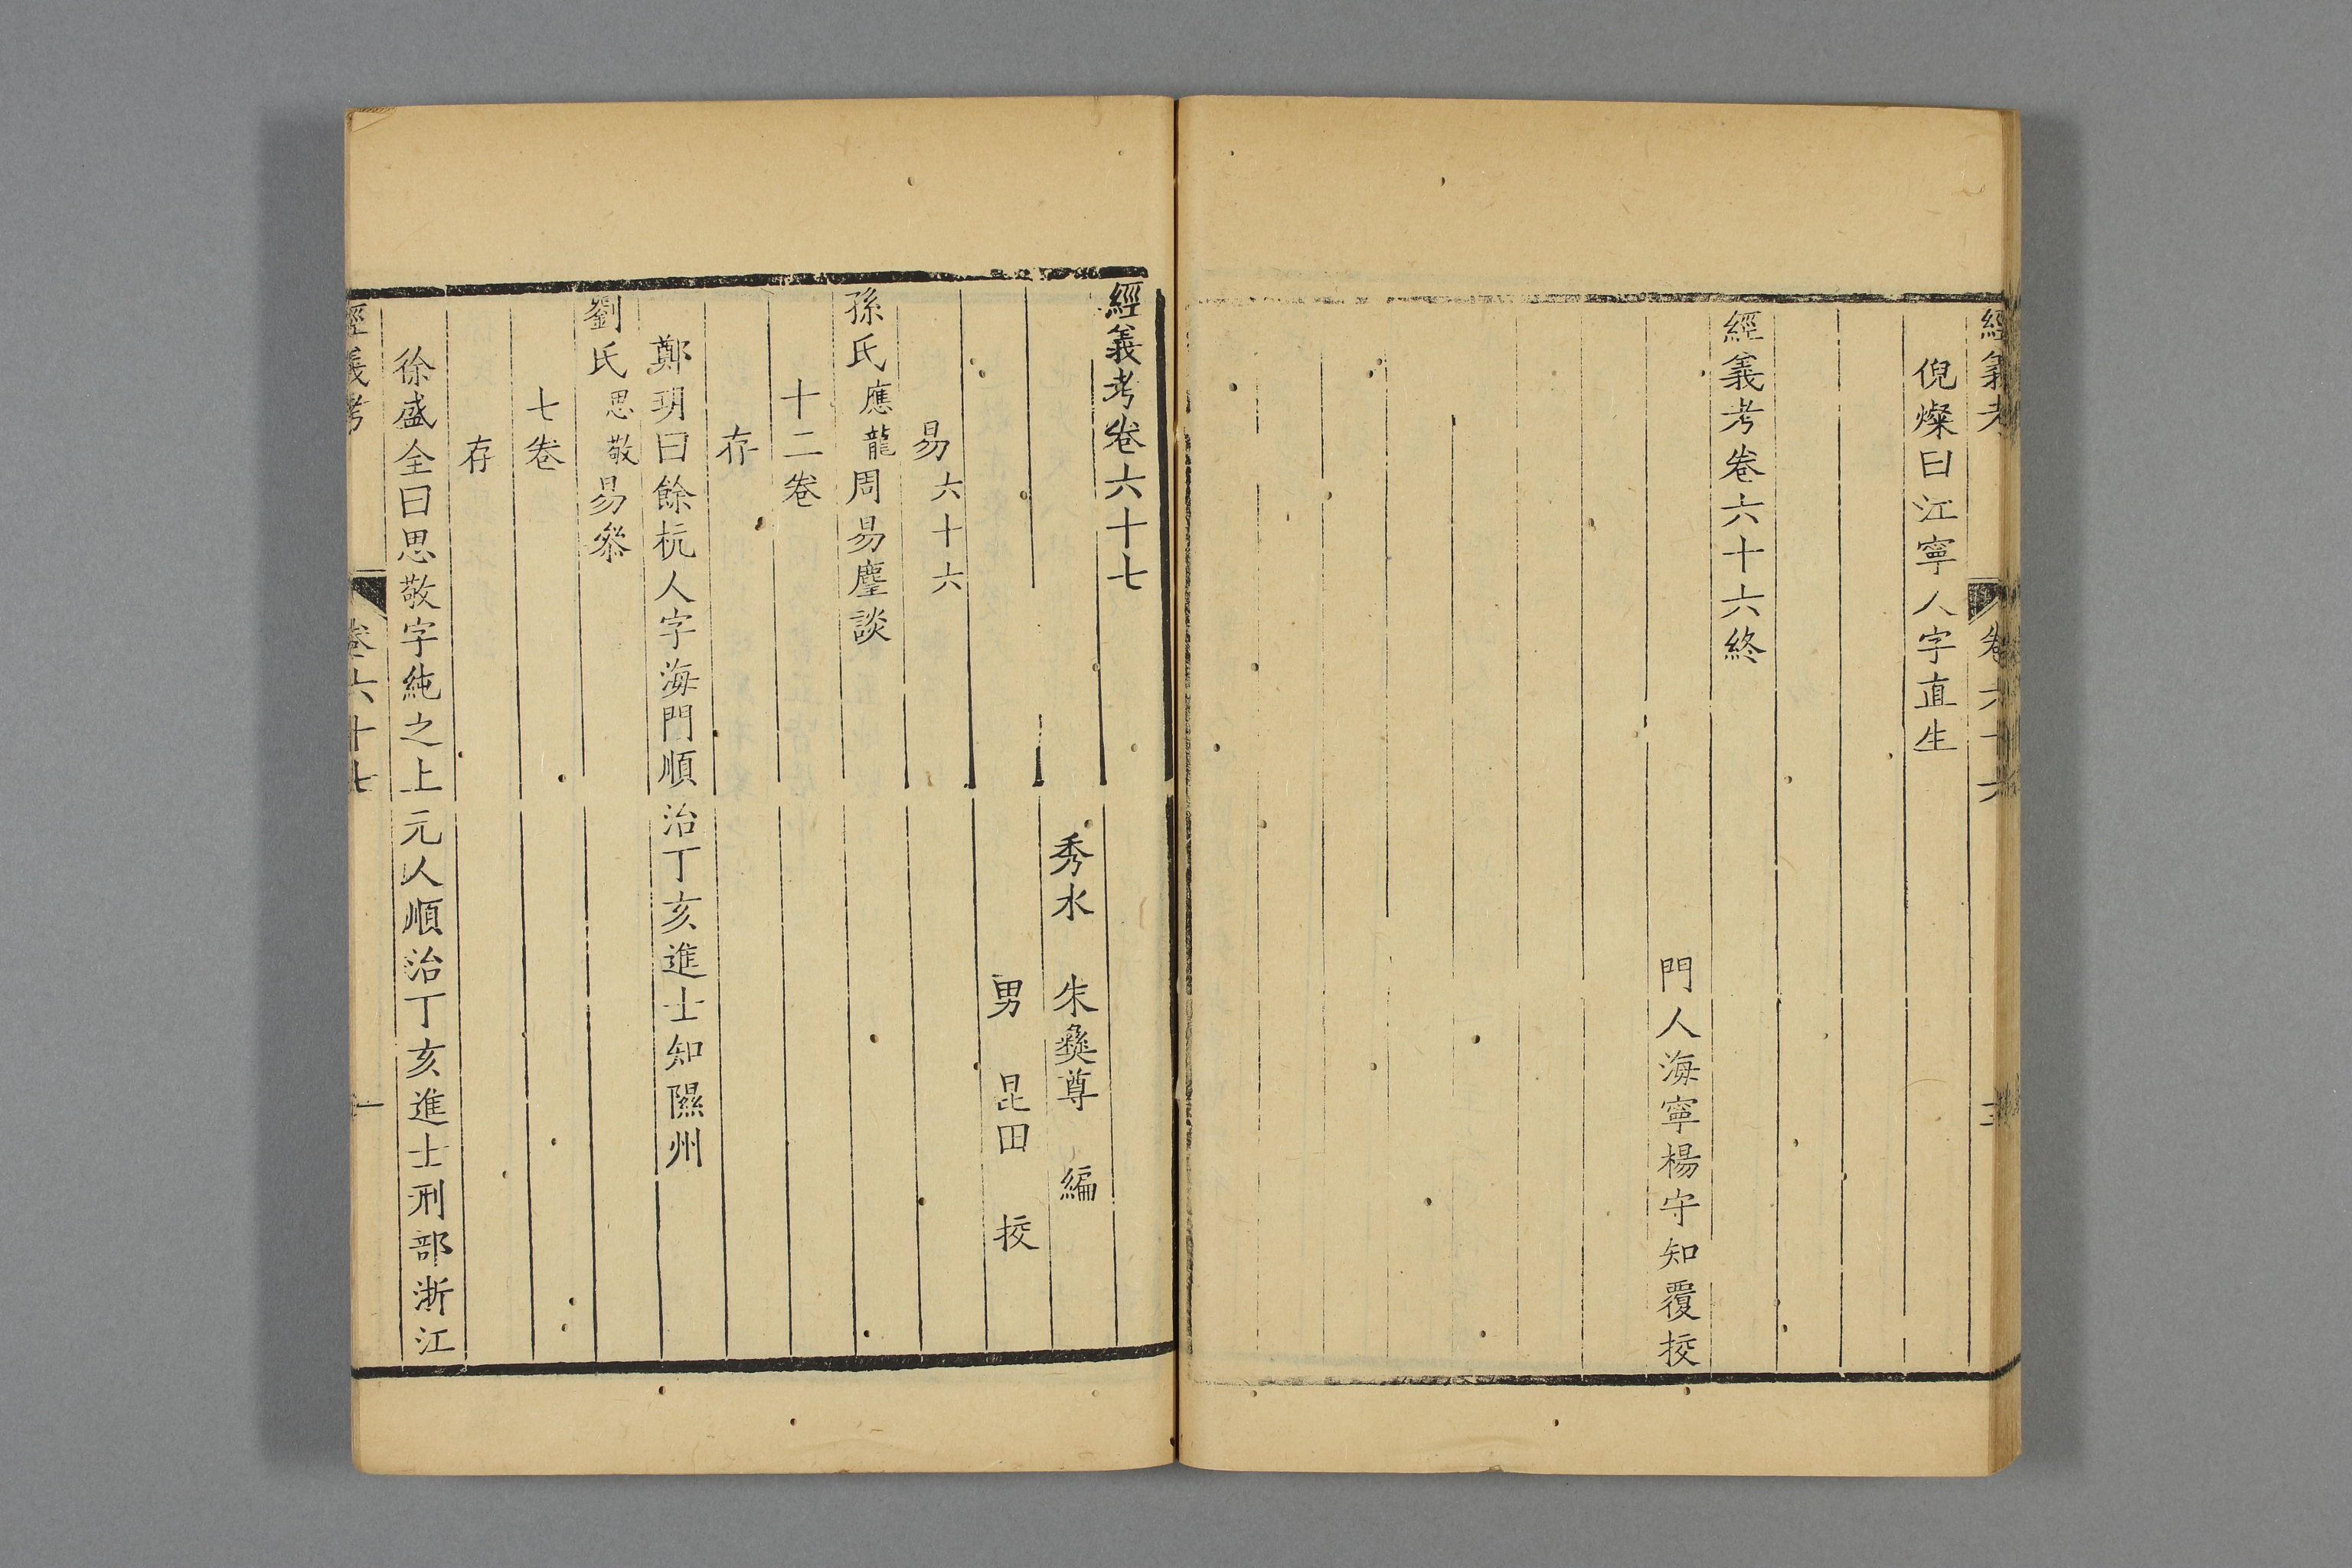 經義考 卷六十六
倪燦曰江寧人字直生
經義考卷六十六終
門人海寧楊守知覆挍
經義考卷六十七
秀水 朱彝尊 編
男 昆田 挍
易六十六
孫氏應龍周易塵談
十二卷
存
鄭玥曰餘杭人字海門順治丁亥進士知隰州
劉氏思敬易叅
七卷
存
徐盛全曰思敬字純之上元人順治丁亥進士刑部浙江
經義考 卷六十七 一